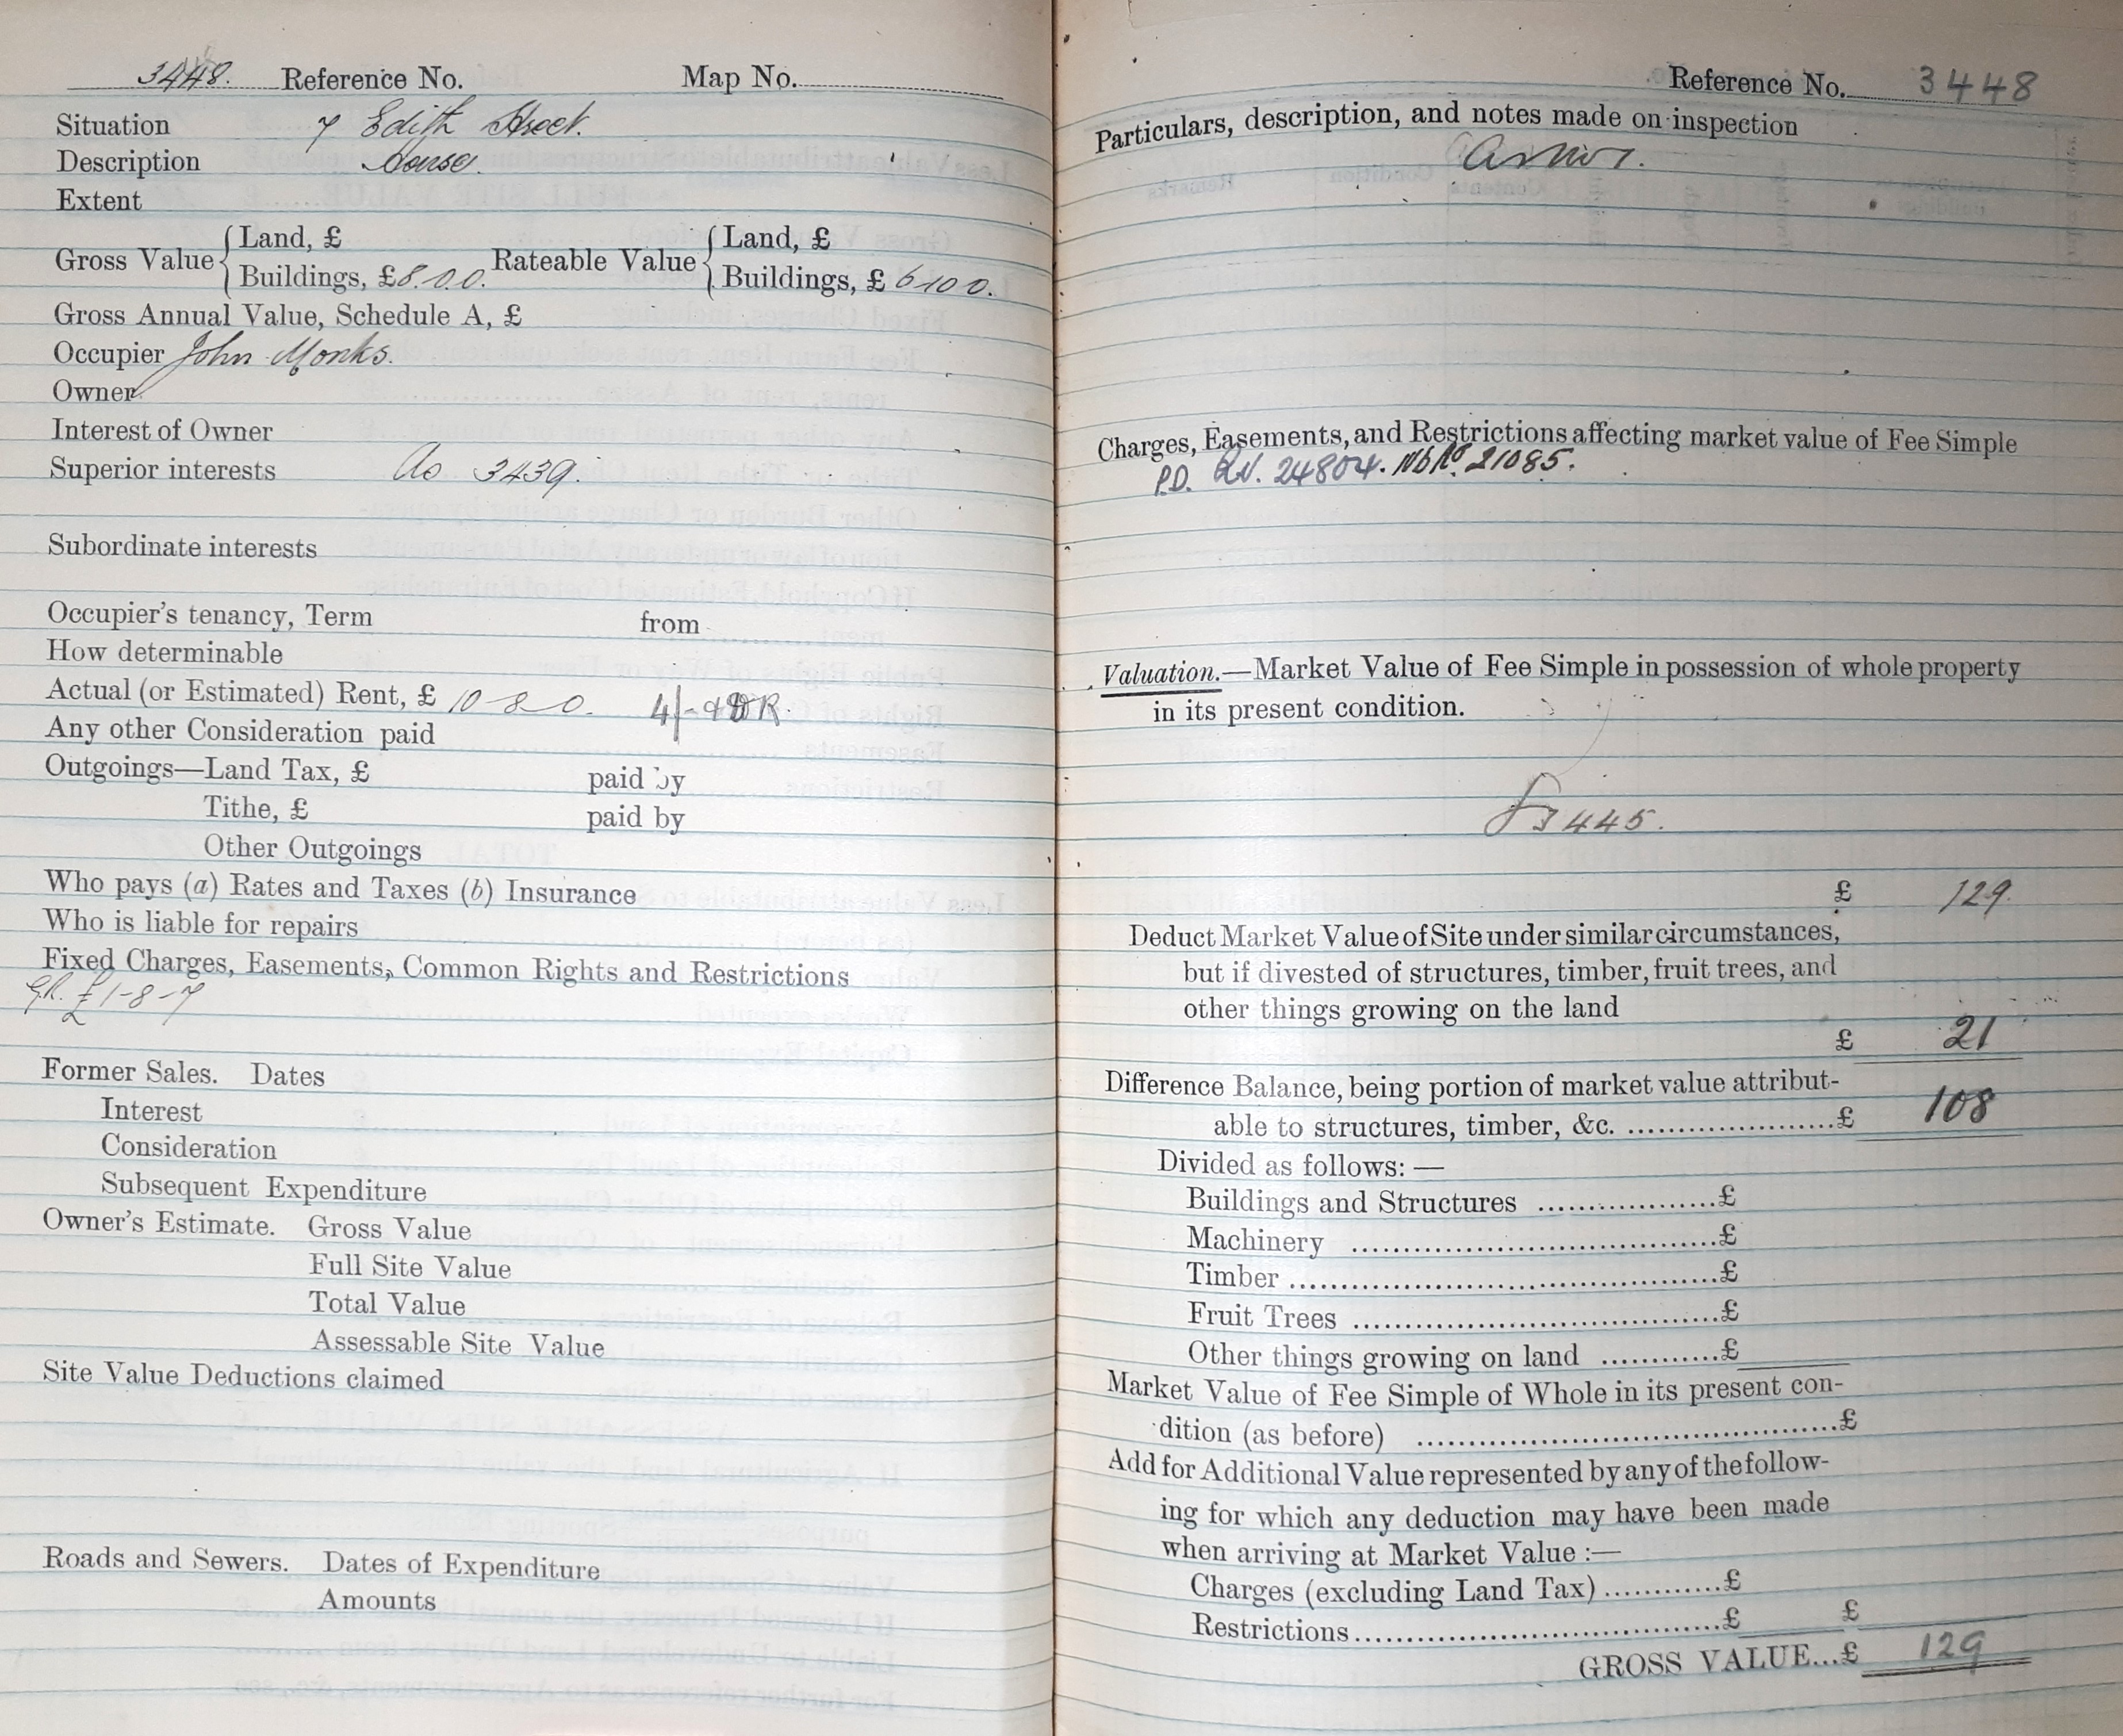 3448. Reference No. Map No.
Situation 7 Edith Street.
Description House.
Extent
Gross Value { Land, £ Rateable Value { Land, £
Buildings, £8.0.0. Buildings, £ 6 10 0.
Gross Annual Value, Schedule A, £
Occupier John Monks.
Owner
Interest of Owner
Superior interests As 3439.
Subordinate interests
Occupier's tenancy, Term from
How determinable
Actual (or Estimated) Rent, £ 10-8-0. 4/-
Any other Consideration paid
Outgoings—Land Tax, £ paid by
Tithe, £ paid by
Other Outgoings
Who pays (a) Rates and Taxes (b) Insurance
Who is liable for repairs
Fixed Charges, Easements, Common Rights and Restrictions
G.R. £1-8-7
Former Sales. Dates
Interest
Consideration
Subsequent Expenditure
Owner's Estimate. Gross Value
Full Site Value
Total Value
Assessable Site Value
Site Value Deductions claimed
Roads and Sewers. Dates of Expenditure
Amounts
Reference No. 3448
Particulars, description, and notes made on inspection
Charges, Easements, and Restrictions affecting market value of Fee Simple
P.D. 24804. No 21085.
Valuation.—Market Value of Fee Simple in possession of whole property
in its present condition.
3445.
£ 129.
Deduct Market Value of Site under similar circumstances,
but if divested of structures, timber, fruit trees, and
other things growing on the land
£ 21
Difference Balance, being portion of market value attribut-
able to structures, timber, &c. £ 108
Divided as follows:—
Buildings and Structures £
Machinery £
Timber £
Fruit Trees £
Other things growing on land £
Market Value of Fee Simple of Whole in its present con-
dition (as before) £
Add for Additional Value represented by any of the follow-
ing for which any deduction may have been made
when arriving at Market Value :—
Charges (excluding Land Tax) £
Restrictions £ £
GROSS VALUE...£ 129